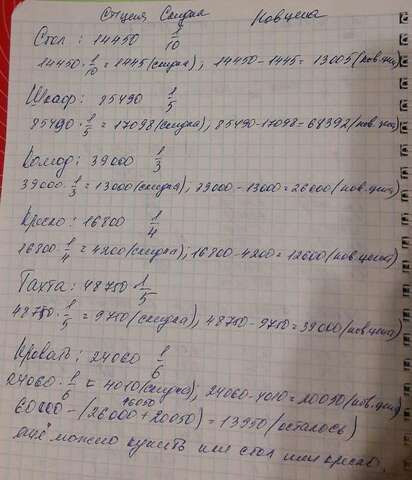 Ст цена Скидка Нов цена
Стол: 14450 1/10
14450 · 1/10 = 1445 (скидка); 14450 - 1445 = 13005 (нов. цена)
Шкаф: 85490 1/5
85490 · 1/5 = 17098 (скидка), 85490 - 17098 = 68392 (нов. цена)
Комод: 39000 1/3
39000 · 1/3 = 13000 (скидка), 39000 - 13000 = 26000 (нов. цена)
Кресло: 16800 1/4
16800 · 1/4 = 4200 (скидка); 16800 - 4200 = 12600 (нов цена)
Тахта: 48750 1/5
48750 · 1/5 = 9750 (скидка), 48750 - 9750 = 39000 (нов цена)
Кровать: 24060 1/6
24060 · 1/6 = 4010 (скидка); 24060 - 4010 = 20050 (нов. цена)
46050
60000 - (26000 + 20050) = 13950 (осталось)
ещё можно купить или стол или кресло.